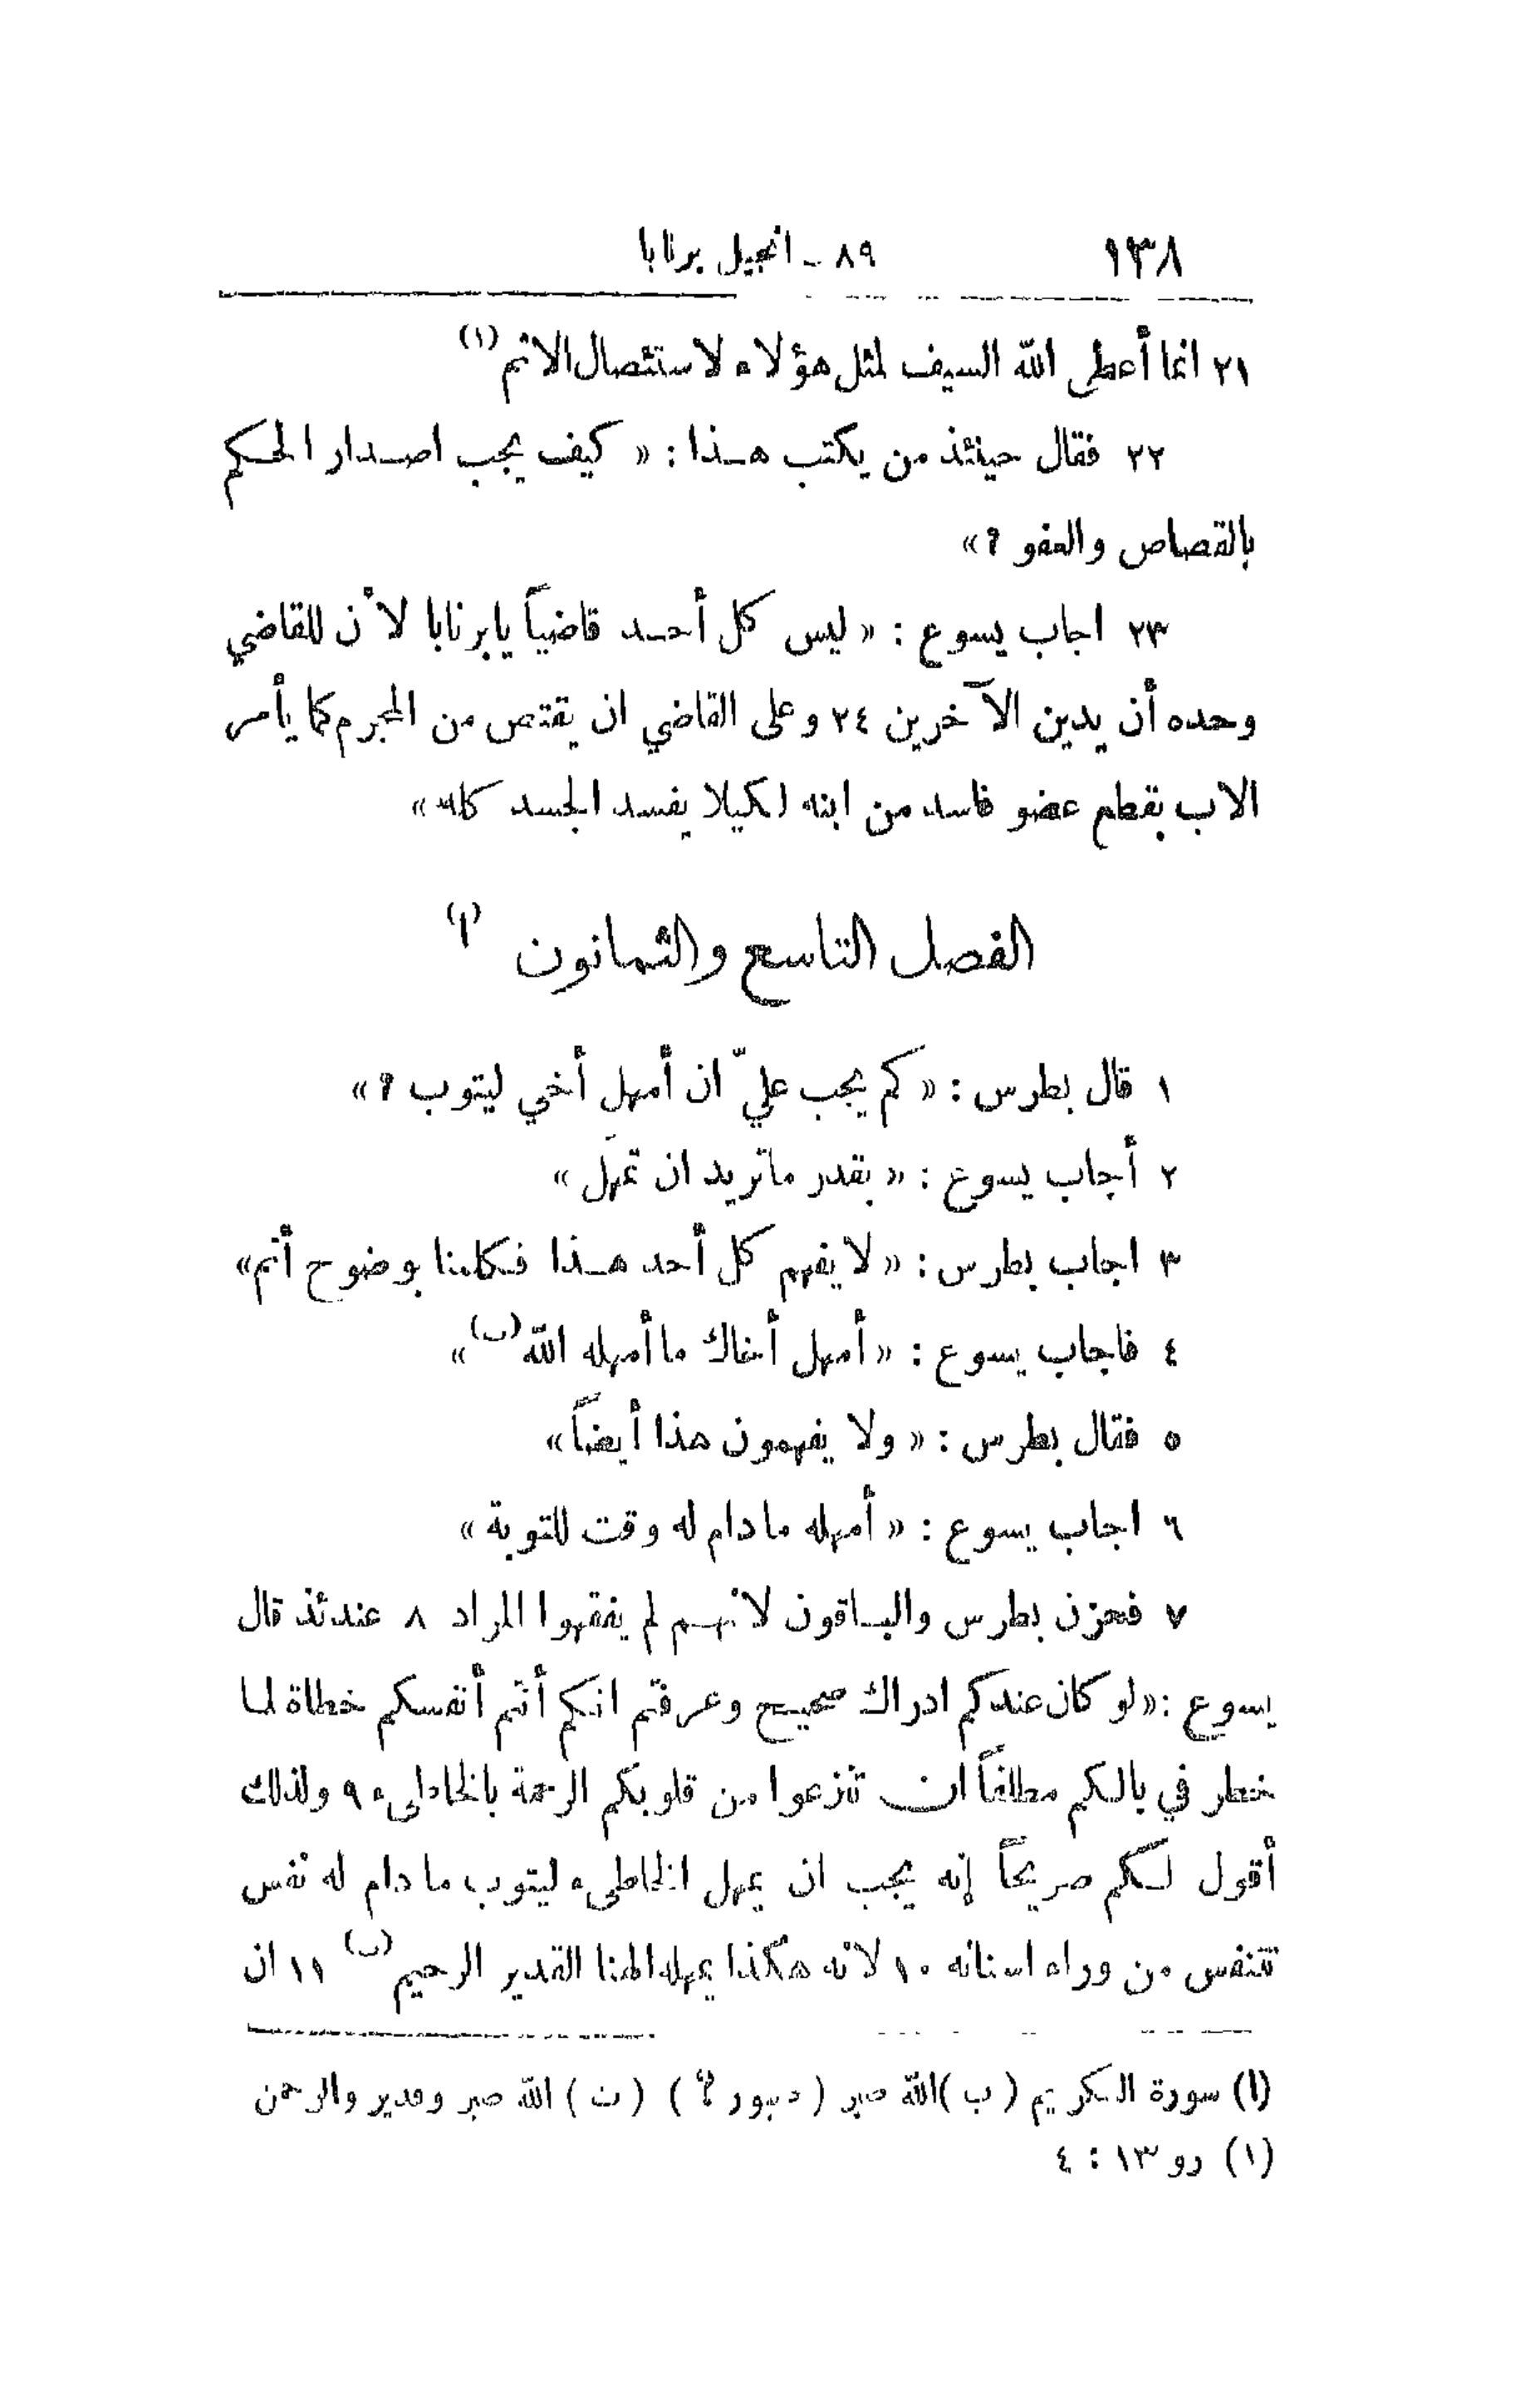 ١٣٨ ٨٩ - انجيل برنابا
٢١ انما أعطى الله السيف لمثل هؤلاء لاستئصال الاثم (١)
٢٢ فقال حينئذ من يكتب هـذا : « كيف يجب اصـدار الحـكم
بالقصاص والعفو ؟ »
٢٣ اجاب يسوع : « ليس كل أحـد قاضياً يابرنابا لأن للقاضي
وحده أن يدين الآخرين ٢٤ وعلى القاضي ان يقتص من المجرم كما يأمر
الاب بقطع عضو فاسد من ابنه لكيلا يفسد الجسد كله »
الفصل التاسع والثمانون (ا)
١ قال بطرس : « كم يجب عليّ ان أمهل أخي ليتوب ؟ »
٢ أجاب يسوع : « بقدر ماتريد ان تمهَل »
٣ اجاب بطرس : « لا يفهم كل أحد هـذا فـكلمنا بوضوح أتم »
٤ فاجاب يسوع : « أمهل أخاك ما أمهله الله (ب) »
٥ فقال بطرس : « ولا يفهمون هذا أيضاً »
٦ اجاب يسوع : « أمهله ما دام له وقت للتوبة »
٧ فحزن بطرس والبـاقون لانهـم لم يفقهوا المراد ٨ عندئذ قال
يسوع : « لو كان عندكم ادراك صحيـح وعرفتم انكم أنتم أنفسكم خطاة لما
خطر في بالـكم مطلقاً ان تنزعوا من قلوبكم الرحمة بالخاطىء ٩ ولذلك
أقول لـكم صريحاً إنه يجب ان يمهل الخاطىء ليتوب ما دام له نفس
تتنفس من وراء اسنانه ١٠ لانه هكذا يمهله الهنا القدير الرحيم (ب) ١١ ان
(ا) سورة الـكريم ( ب ) الله صبر ( صبور ؟ ) ( ت ) الله صبر وقدير والرحمن
(١) رو ١٣ : ٤